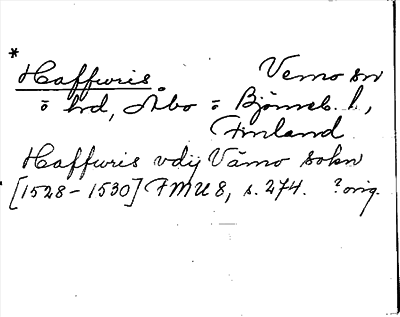 * Haffuris Vemo sn
ö hd, Åbo o Björneb. l.,
Finland
Haffuris vdij Vämo sokn
[1528-1530] FMU 8, s. 274. ? orig.